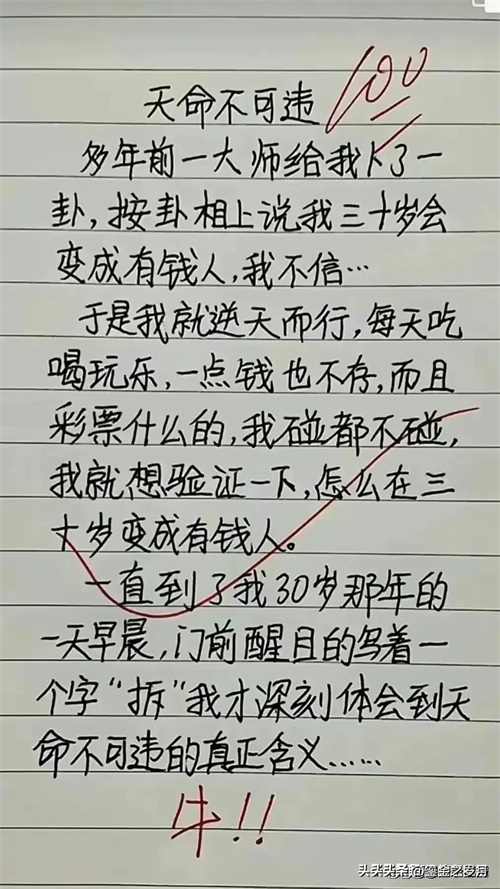 天命不可违
100
多年前一大师给我卜了一
卦,按卦相上说我三十岁会
变成有钱人,我不信…
于是我就逆天而行,每天吃
喝玩乐,一点钱也不存,而且
彩票什么的,我碰都不碰,
我就想验证一下,怎么在三
十岁变成有钱人。
一直到了我30岁那年的
一天早晨,门前醒目的写着一
个字“拆”我才深刻体会到天
命不可违的真正含义……
牛!!